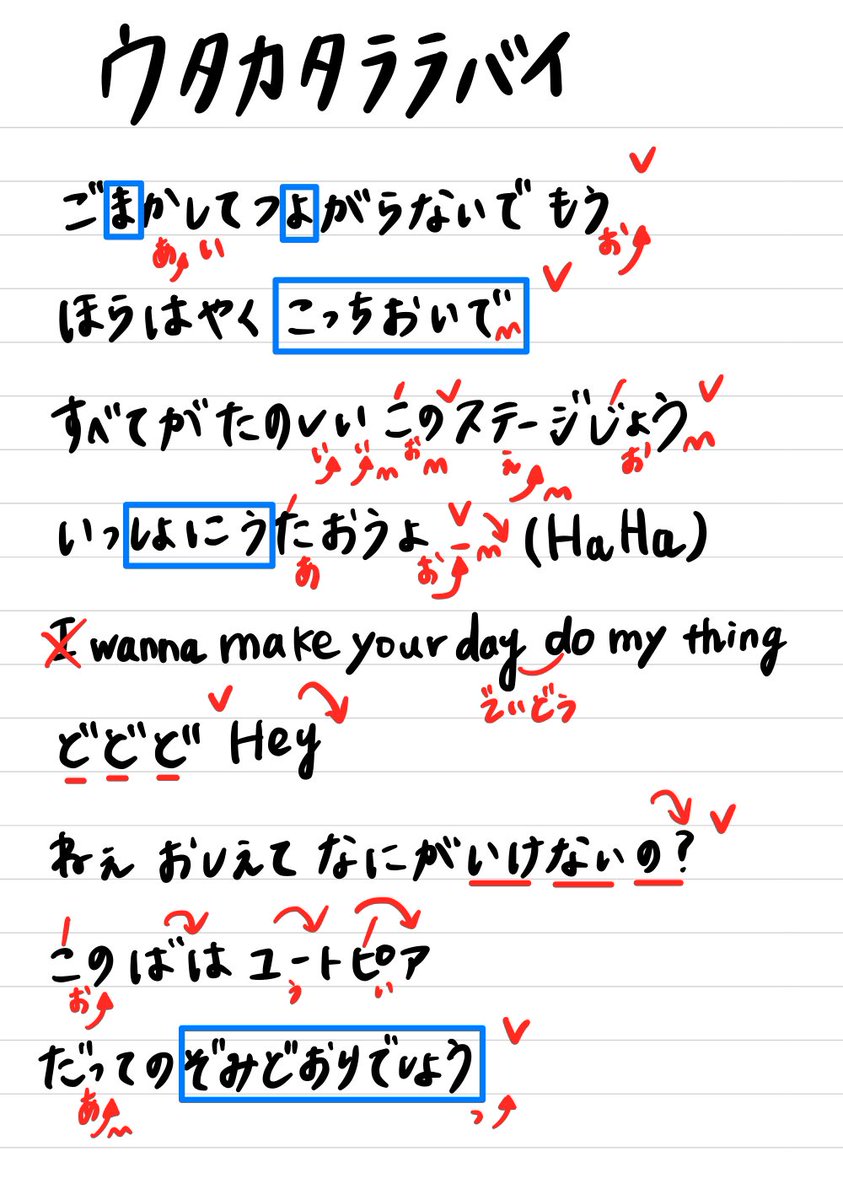 ウタカタララバイ
ごまかしてつよがらないで もう
あ い お
ほらはやく こっちおいで
すべてがたのしい このステージじょう
い い お え お
いっしょにうたおうよ ー (HaHa)
あ お
I wanna make your day do my thing
でぃどぅ
どどど Hey
ねぇ おしえて なにがいけないの?
このばは ユートピア
お う い
だってのぞみどおりでしょう
あ っ